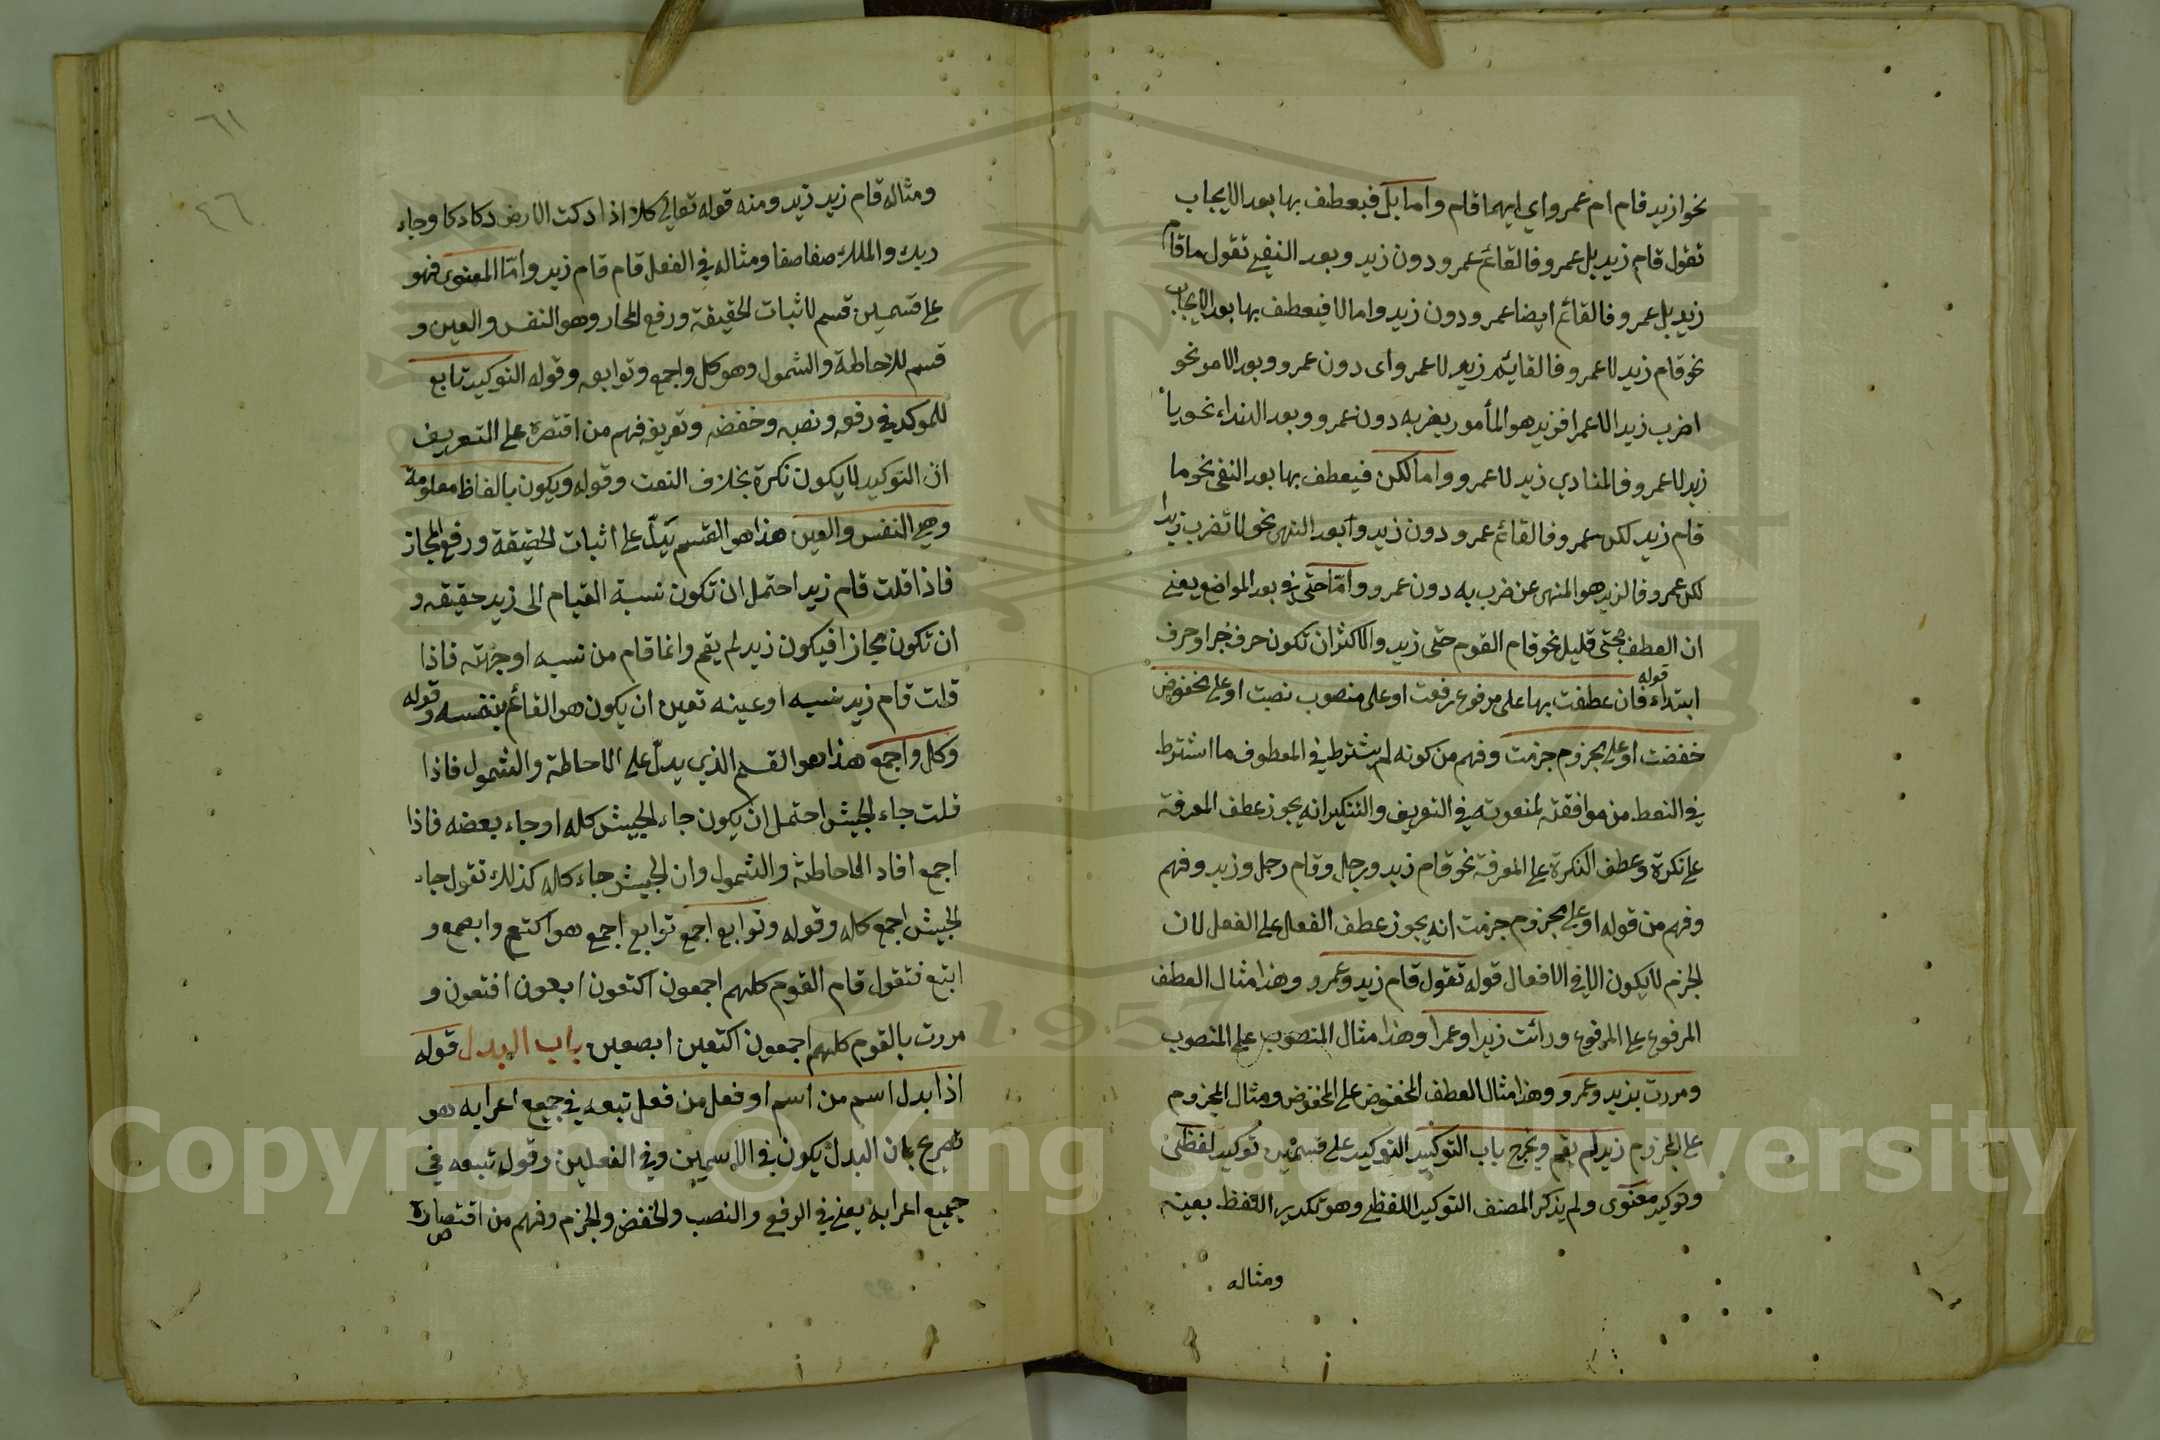 نحو ازيد قام ام عمرو اي ايهما قام واما بل فيعطف بها بعد الايجاب
تقول قام زيد بل عمرو فالقائم عمرو دون زيد وبعد النفي تقول ما قام
زيد بل عمرو فالقائم ايضا عمرو دون زيد واما لا فيعطف بها بعد الايجاب
نحو قام زيد لا عمرو فالقائم زيد لا عمرو اى دون عمرو وبعد الامر نحو
اضرب زيدا لا عمرا فزيد هو المأمور بضربه دون عمرو وبعد النداء نحو يا
زيد لا عمرو فالمنادي زيد لا عمرو واما لكن فيعطف بها بعد النفى نحو ما
قام زيد لكن عمرو فالقائم عمرو دون زيد وبعد النهى نحو لا تضرب زيدا
لكن عمرو فالزيد هو المنهى عن ضرب به دون عمرو واما حتى في بعد المواضع يعني
ان العطف بحتى قليل نحو قام القوم حتى زيد والاكثر ان تكون حرف جر او حرف
ابتداء قوله فان عطفت بها على مرفوع رفعت او على منصوب نصبت او على مخفوض
خفضت او على مجزوم جزمت وفهم من كونه لم يشترط في المعطوف ما اشترط
في النعط من موافقته لمنعوته في التعريف والتنكير انه يجوز عطف المعرفة
على نكرة وعطف النكرة على المعرفة نحو قام زيد ورجل وقام رجل وزيد وفهم
وفهم من قوله او على مجزوم جزمت انه يجوز عطف الفعل على الفعل لان
الجزم لا يكون الا في الافعال قوله تقول قام زيد وعمرو وهذا مثال العطف
المرفوع على المرفوع ورائت زيدا وعمرا وهذا مثال المنصوب على المنصوب
ومررت بزيد وعمرو وهذا مثال العطف المخفوض على المخفوض ومثال المجزوم
على المجزوم زيد لم يقم ويخرج باب التوكيد التوكيد على قسمين توكيد لفظى
وتوكيد معنوى ولم يذكر المصنف التوكيد اللفظي وهو تكدير اللفظ بعينه
ومثاله
٦١
٤٦
ومثاله قام زيد زيد ومنه قوله تعالى كلا اذا دكت الارض دكا دكا وجاء
ربك والملك صفا صفا ومثاله في الفعل قام قام زيد واما المعنوى فهو
على قسمين قسم لاثبات الحقيقة ورفع المجاز وهو النفس والعين و
قسم للاحاطة والشمول وهو كل واجمع وتوابعه وقوله التوكيد تابع
للموكد في رفعه ونصبه وخفضه وتعريفه فهم من اقتصره على التعريف
ان التوكيد لا يكون نكرة بخلاف النعت وقوله ويكون بالفاظ معلومة
وهي النفس والعين هذا هو القسم يدل على اثبات الحقيقة ورفع المجاز
فاذا قلت قام زيد احتمل ان تكون نسبة القيام الى زيد حقيقه و
ان تكون مجازا فيكون زيد لم يقم وانما قام من نسبه او جهته فاذا
قلت قام زيد نفسه او عينه تعين ان يكون هو القائم بنفسه وقوله
وكل واجمع هذا هو القسم الذي يدل على الاحاطة والشمول فاذا
قلت جاء الجيش احتمل ان يكون جاء الجيش كله او جاء بعضه فاذا
اجمع افاد الاحاطة والشمول وان الجيش جاء كله كذلك تقول جاء
الجيش اجمع كله وقوله وتوابع اجمع توابع اجمع هو اكتع وابصع و
ابتع فتقول قام القوم كلهم اجمعون اكتعون ابعون افتعون و
مررت بالقوم كلهم اجمعون اكتعين ابصعين باب البدل قوله
اذا بدل اسم من اسم او فعل من فعل تبعه في جميع اعرابه هو
تصرع بان البدل يكون في الاسمين وفي الفعلين وقوله تبعه في
جميع اعرابه يعني في الرفع والنصب والخفض والجزم وفهم من اقتصاره
Copyright © King Saud University
1957